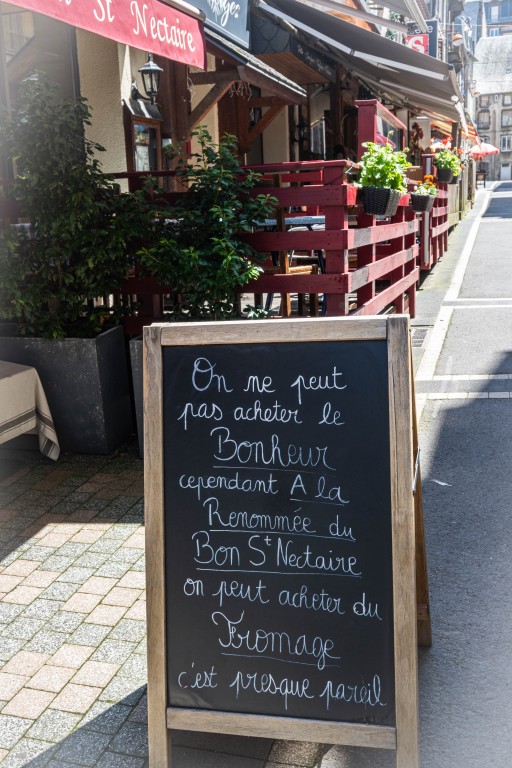 St Nectaire
On ne peut
pas acheter le
Bonheur
cependant A la
Renommée du
Bon St Nectaire
on peut acheter du
Fromage
c'est presque pareil